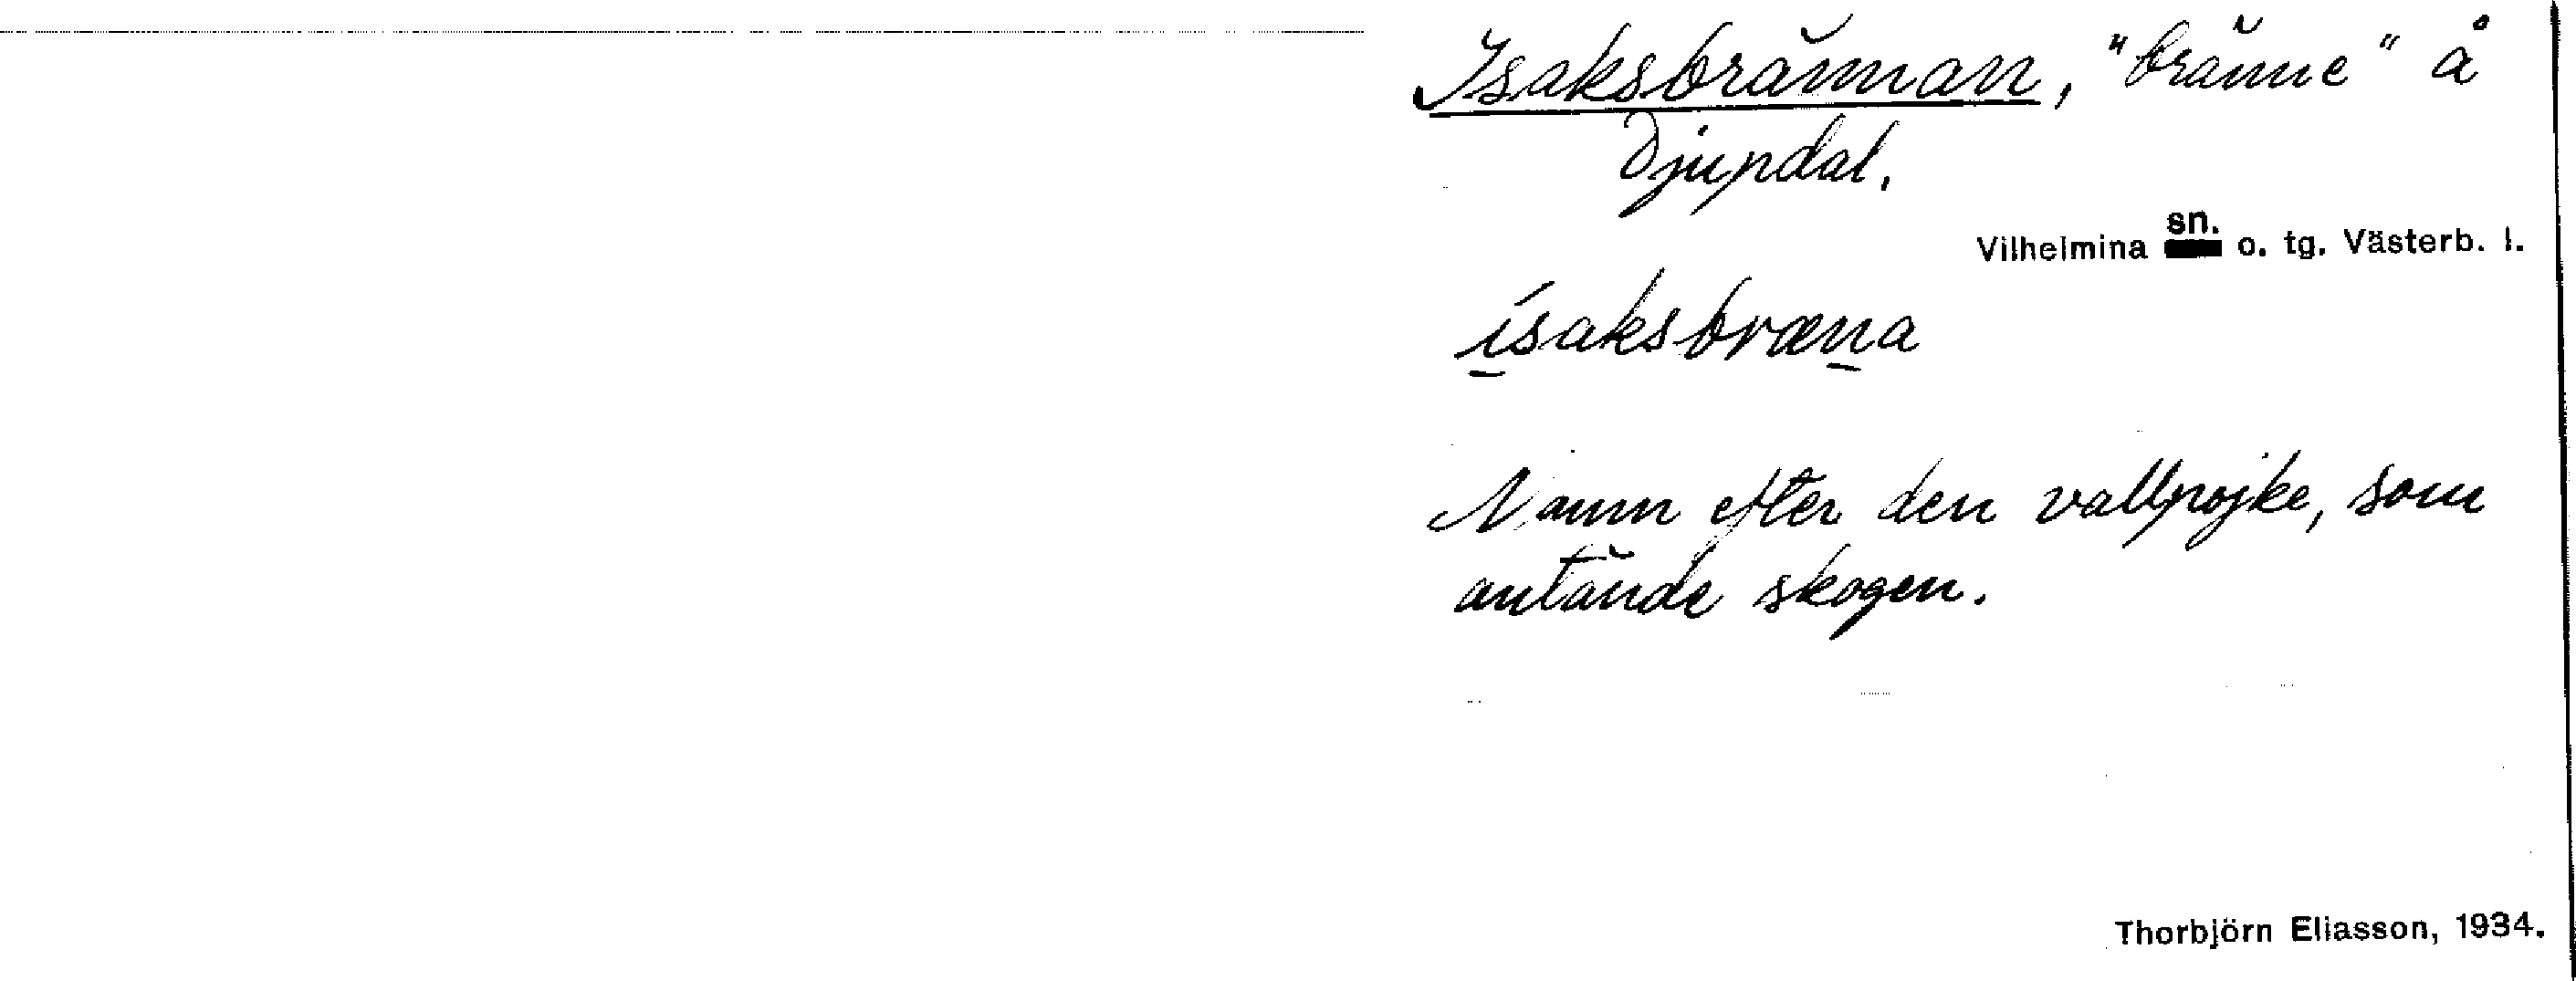 Isaksbrännan, "bränne" å
Djupdal.
Vilhelmina sn. o. tg. Västerb. l.
ísaksbræna
Namn efter den vallpojke, som
antände skogen.
Thorbjörn Eliasson, 1934.